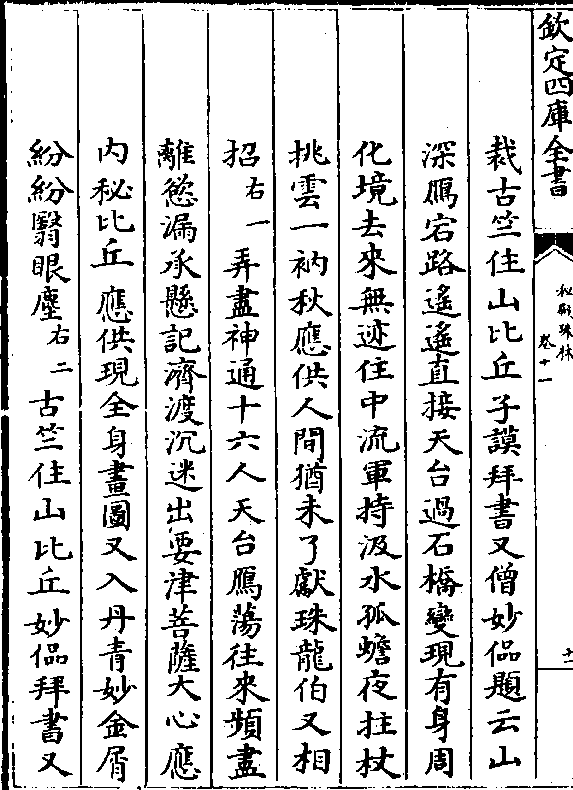 欽定四庫全書
秘殿珠林
卷十一
十一
裁古竺住山比丘子謨拜書又僧妙侃題云山
深鴈宕路遙遙直接天台過石橋變現有身周
化境去來無迹住中流軍持汲水孤蟾夜拄杖
挑雲一衲秋應供人間猶未了獻珠龍伯又相
招右一弄盡神通十六人天台鴈蕩往來頻盡
離慾漏承懸記濟渡沉迷出要津菩薩大心應
内秘比丘應供現全身畫圖又入丹青妙金屑
紛紛翳眼塵右二古竺住山比丘妙侃拜書又